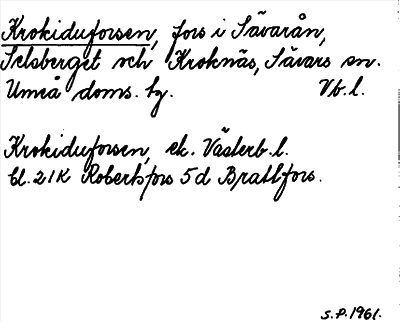 Krokiduforsen, fors i Sävarån,
Selsberget och Kroknäs, Sävars sn.
Umeå doms. hg. Vb. l.
Krokiduforsen, ek. Västerb. l.
bl. 21K Robertsfors 5d Brattfors.
S.P. 1961.